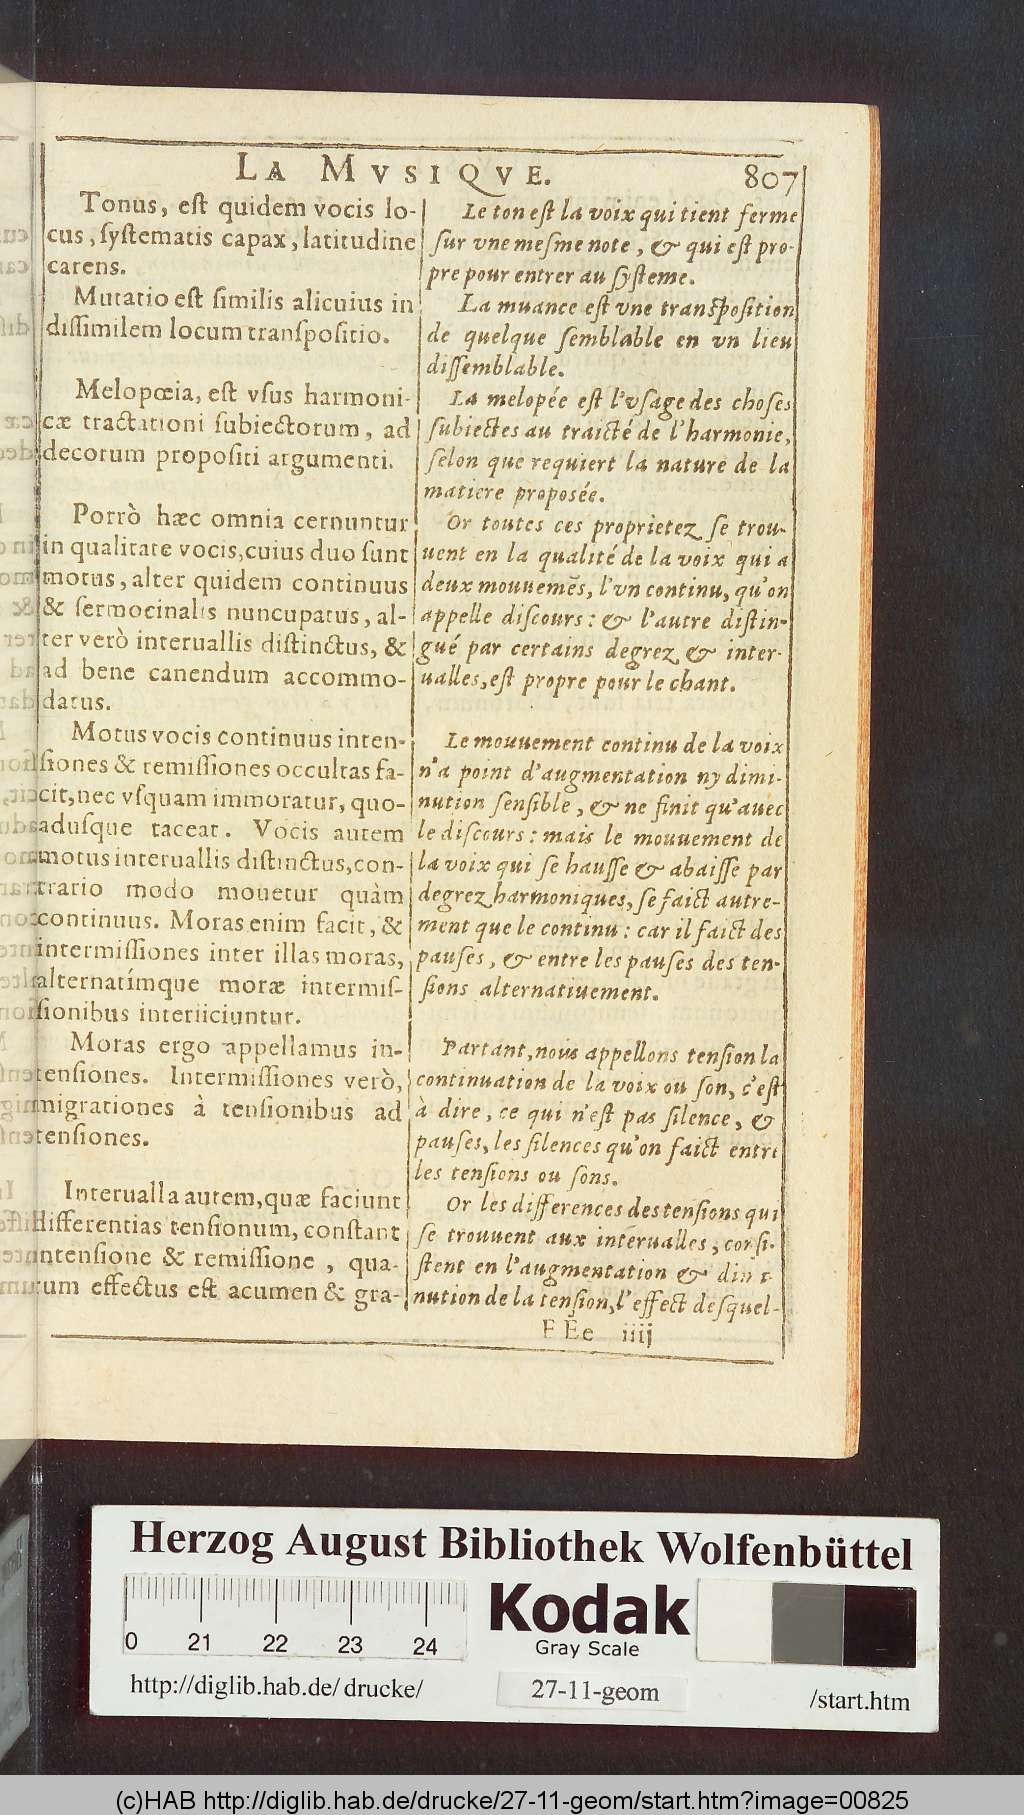 LA MVSIQVE. 807
Tonus, est quidem vocis lo-
cus, systematis capax, latitudine
carens.
Mutatio est similis alicuius in
dissimilem locum transpositio.
Melopœia, est vsus harmoni-
cæ tractationi subiectorum, ad
decorum propositi argumenti.
Porrò hæc omnia cernuntur
in qualitate vocis, cuius duo sunt
motus, alter quidem continuus
& sermocinalis nuncupatus, al-
ter verò interuallis distinctus, &
ad bene canendum accommo-
datus.
Motus vocis continuus inten-
siones & remissiones occultas fa-
cit, nec vsquam immoratur, quo-
adusque taceat. Vocis autem
motus interuallis distinctus, con-
trario modo mouetur quàm
continuus. Moras enim facit, &
intermissiones inter illas moras,
alternatímque moræ intermis-
sionibus interiiciuntur.
Moras ergo appellamus in-
tensiones. Intermissiones verò,
migrationes à tensionibus ad
tensiones.
Interualla autem, quæ faciunt
differentias tensionum, constant
intensione & remissione, qua-
rum effectus est acumen & gra-
Le ton est la voix qui tient ferme
sur vne mesme note, & qui est pro-
pre pour entrer au systeme.
La muance est vne transposition
de quelque semblable en vn lieu
dissemblable.
La melopée est l'vsage des choses
subiectes au traicté de l'harmonie,
selon que requiert la nature de la
matiere proposée.
Or toutes ces proprietez se trou-
uent en la qualité de la voix qui a
deux mouuemēs, l'vn continu, qu'on
appelle discours: & l'autre distin-
gué par certains degrez & inter-
ualles, est propre pour le chant.
Le mouuement continu de la voix
n'a point d'augmentation ny dimi-
nution sensible, & ne finit qu'auec
le discours: mais le mouuement de
la voix qui se hausse & abaisse par
degrez harmoniques, se faict autre-
ment que le continu: car il faict des
pauses, & entre les pauses des ten-
sions alternatiuement.
Partant, nous appellons tension la
continuation de la voix ou son, c'est
à dire, ce qui n'est pas silence, &
pauses, les silences qu'on faict entre
les tensions ou sons.
Or les differences des tensions qui
se trouuent aux interualles, consi-
stent en l'augmentation & dimi-
nution de la tension, l'effect desquel-
FEe iiij
Herzog August Bibliothek Wolfenbüttel
0 21 22 23 24
Kodak
Gray Scale
http://diglib.hab.de/drucke/ 27-11-geom /start.htm
(c)HAB http://diglib.hab.de/drucke/27-11-geom/start.htm?image=00825